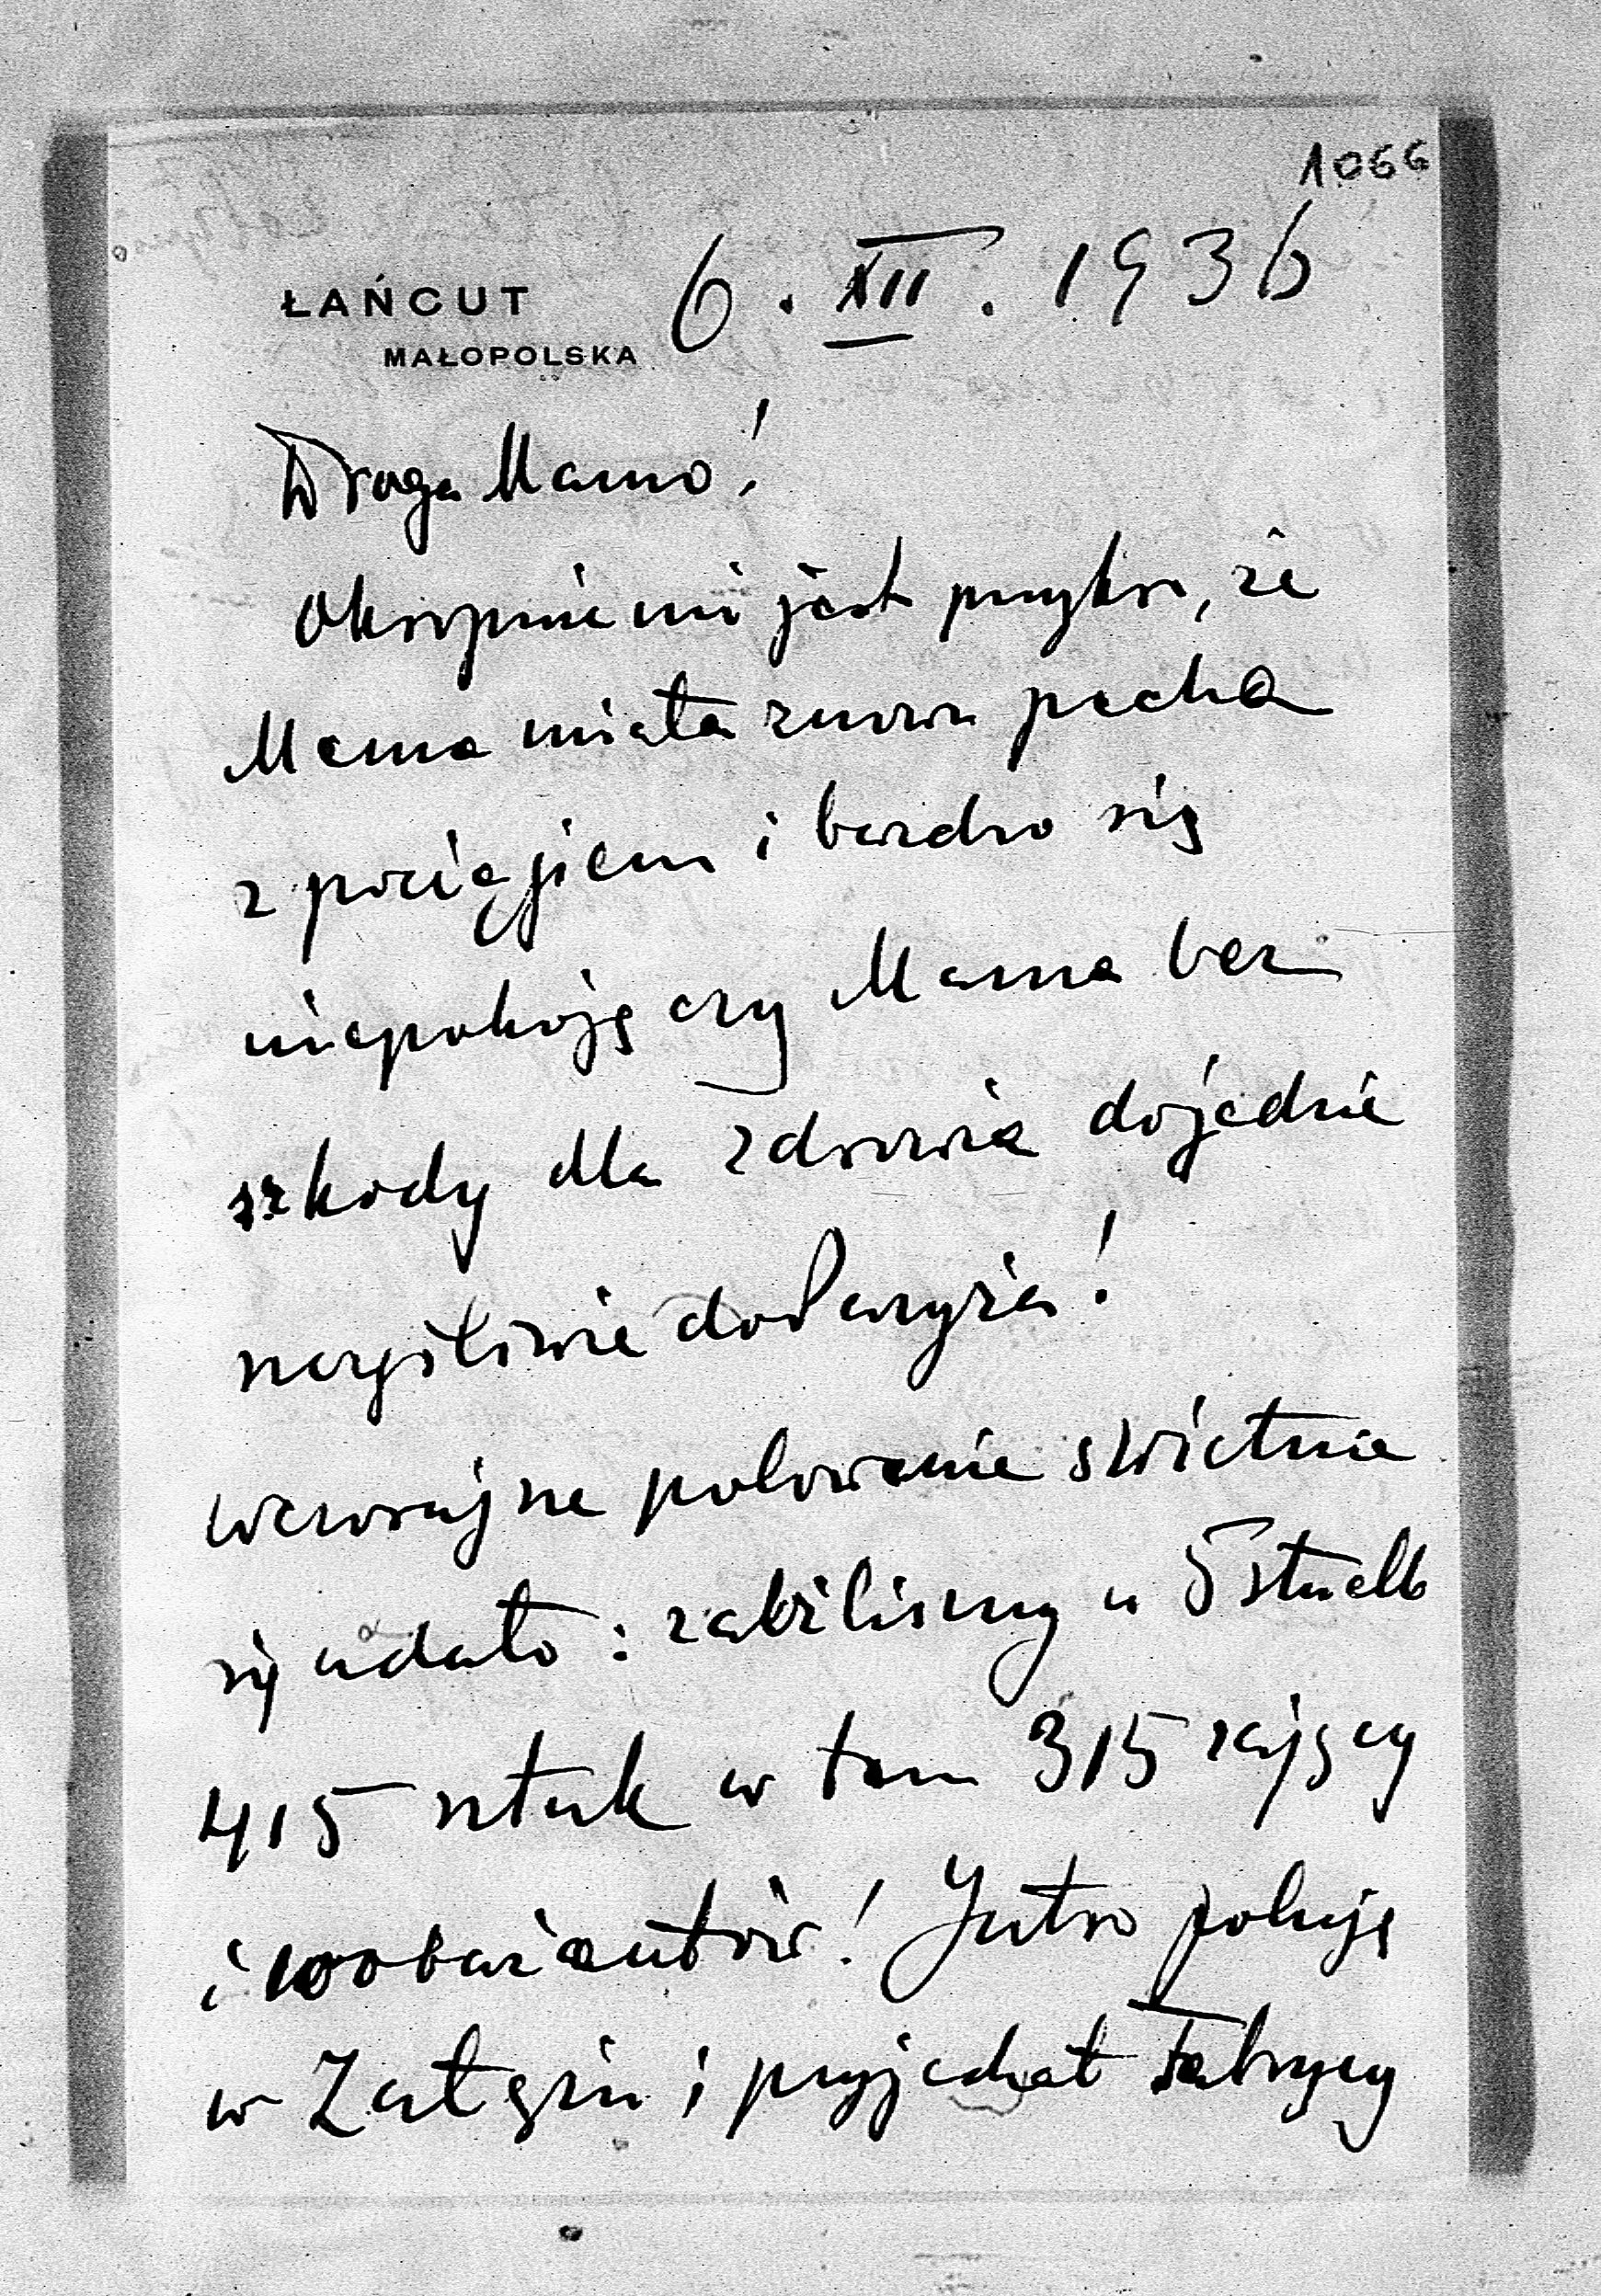 1066
ŁAŃCUT 6. XII. 1936
MAŁOPOLSKA
Droga Mamo!
Okropnie mi jest przykro, że
Mama miała znowu pecha
z pociągiem i bardzo się
niepokoję czy Mama bez
szkody dla zdrowia dojedzie
szczęśliwie do Paryża!
Wczorajsze polowanie świetnie
się udało: zabiliśmy w 5 strzelb
415 sztuk w tem 315 zajęcy
i 100 bażantów! Jutro poluję
w Załężu i przyjechał